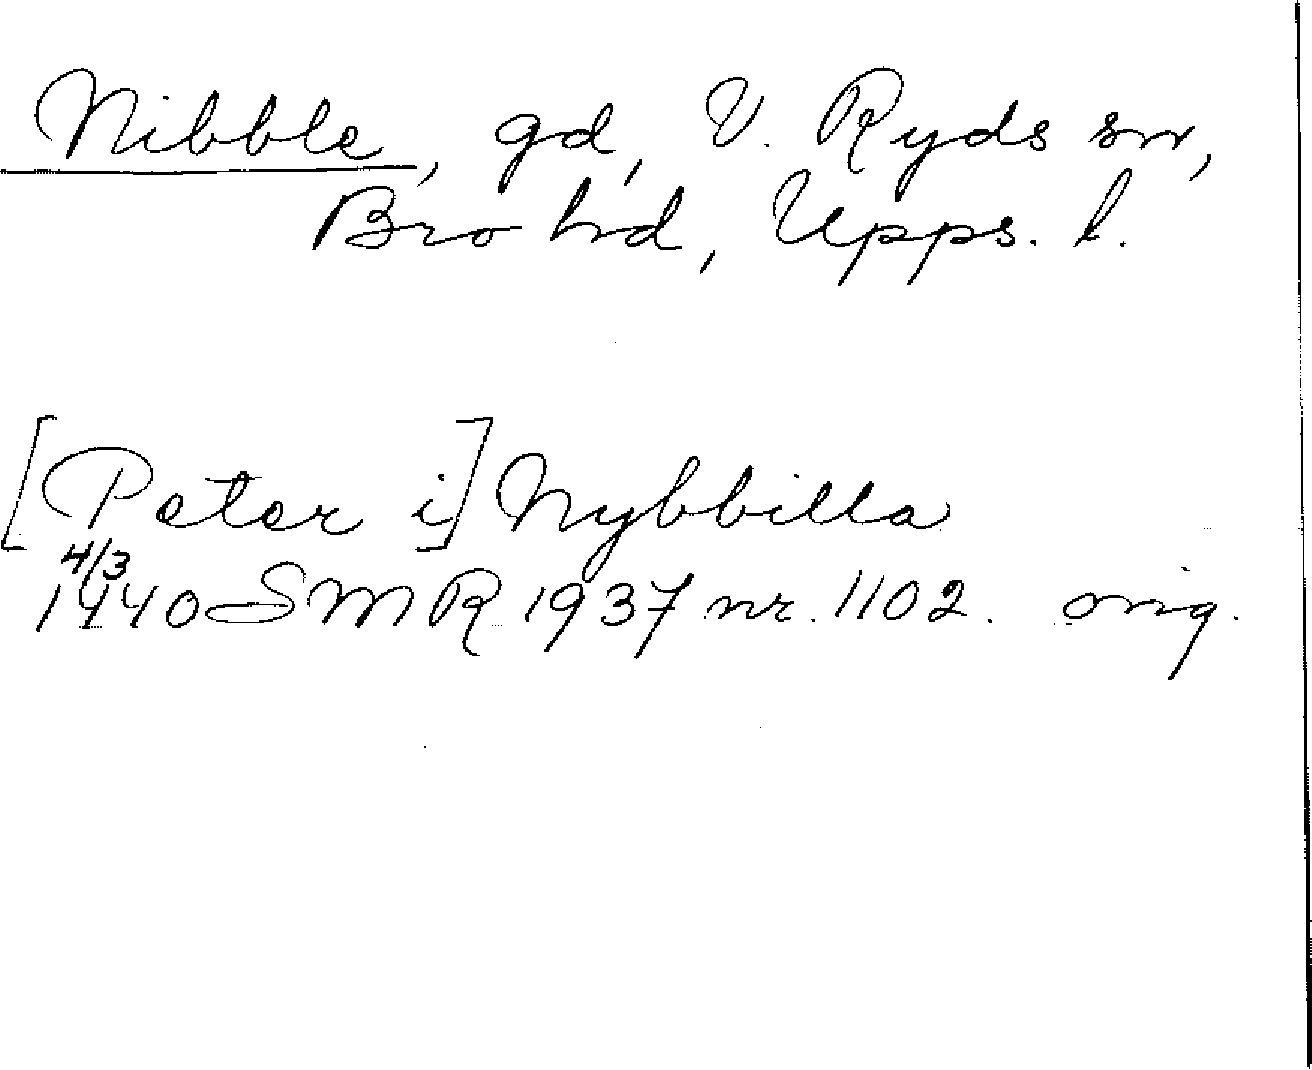 Nibble, gd, V. Ryds sn,
Bro hd, Upps. l.
[Peter i] Nybbilla
4/3
1440 SMR 1937 nr. 1102. orig.